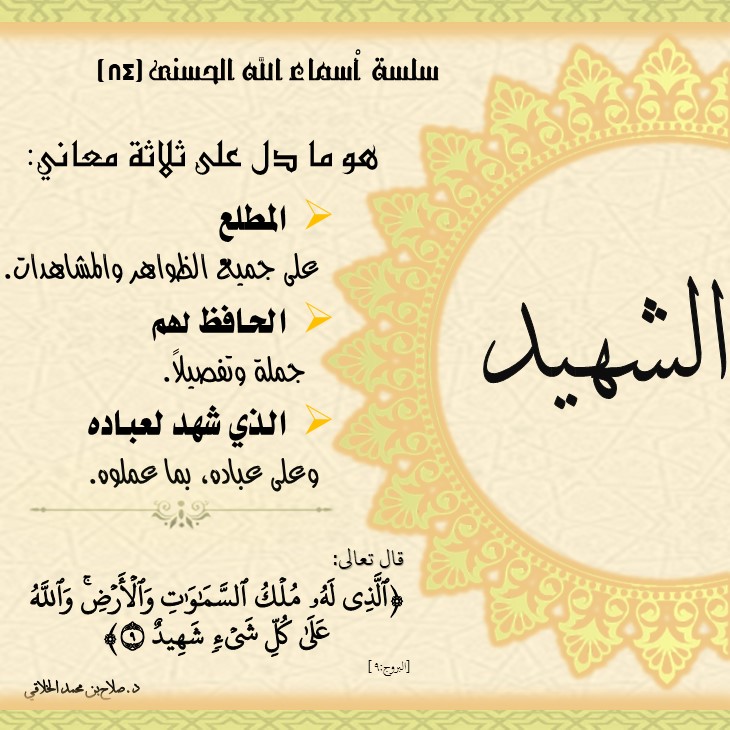 سلسة أسماء الله الحسنى (٨٤)
الشهيد
هو ما دل على ثلاثة معاني:
المطلع
على جميع الظواهر والمشاهدات.
الحافظ لهم
جملة وتفصيلاً.
الذي شهد لعباده
وعلى عباده، بما عملوه.
قال تعالى:
﴿ٱلَّذِى لَهُۥ مُلْكُ ٱلسَّمَـٰوَٰتِ وَٱلْأَرْضِ ۚ وَٱللَّهُ
عَلَىٰ كُلِّ شَىْءٍ شَهِيدٌ ٩﴾
[البروج:٩]
د.صلاح بن محمد الخلاقي